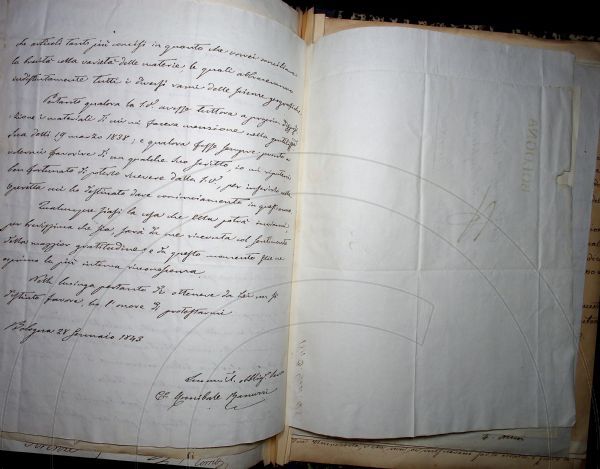 da articoli tanto più concisi in quanto che vorrei conciliare
la brevità colla varietà delle materie, le quali abbracceranno
indistintamente tutti i diversi rami delle scienze geografiche.
Pertanto qualora la S.V. avesse tuttora a propria disposi-
zione i materiali di cui mi faceva menzione nella
sua delli 19 marzo 1838; e qualora fosse sempre pronto a
volermi favorire di un qualche suo scritto, io mi reputerei
ben fortunato di poterlo ricevere dalla S.V., per inserirlo nella
Operetta cui ho destinato dare cominciamento in quest'anno
Qualunque siasi la cosa che Ella potrà inviarmi,
per brevissima che sia sarà da me ricevuta col sentimento
della maggior gratitudine e da questo momento gliene
esprimo la più intensa riconoscenza.
Nella lusinga pertanto di ottenere da Lei un sì
distinto favore, ho l'onore di protestarmi
Bologna 28 Gennaio 1843
Annibale Ranuzzi
BOLOGNA